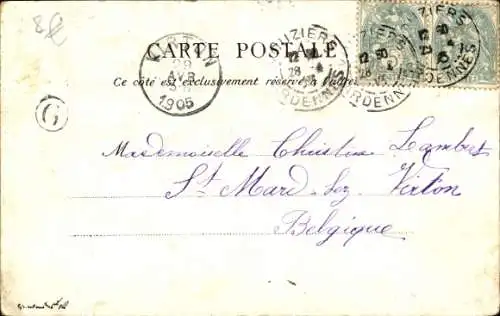 8f
CARTE POSTALE
Ce côté est exclusivement réservé à l'adresse
VIRTON
28
AVR
1905
VOUZIERS
28 -4
ARDENNES
VOUZIERS
28 -4
ARDENNES
G
Mademoiselle Christine Lambert
St Mard-lez-Virton
Belgique